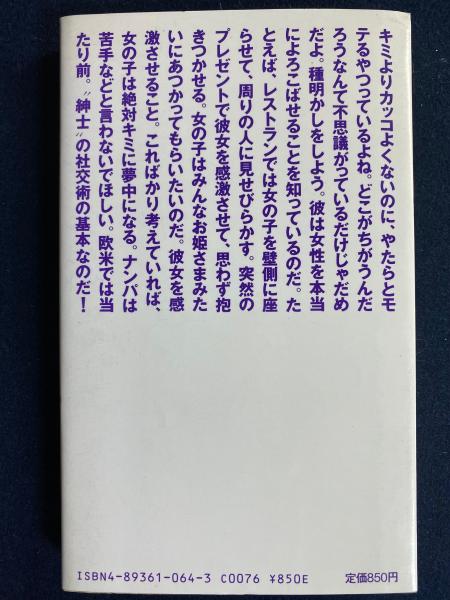 キミよりカッコよくないのに、やたらとモ
テるやつっているよね。どこがちがうんだ
ろうなんて不思議がっているだけじゃだめ
だよ。種明かしをしよう。彼は女性を本当
によろこばせることを知っているのだ。た
とえば、レストランでは女の子を壁側に座
らせて、周りの人に見せびらかす。突然の
プレゼントで彼女を感激させて、思わず抱
きつかせる。女の子はみんなお姫さまみた
いにあつかってもらいたいのだ。彼女を感
激させること。こればかり考えていれば、
女の子は絶対キミに夢中になる。ナンパは
苦手などと言わないでほしい。欧米では当
たり前。〝紳士〟の社交術の基本なのだ！
ISBN4-89361-064-3 C0076 ¥850E 定価850円